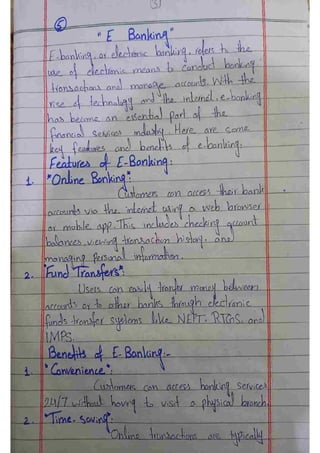 (3)
(5)
"E Banking"
E-banking, or electronic banking, refers to the
use of electronic means to conduct banking
transactions and manage accounts. With the
rise of technology and the internet, e-banking
has become an essential part of the
financial services industry. Here are some
key features and benefits of e-banking:
Features of E-Banking:
1. *Online Banking*:
Customers can access their bank
accounts via the internet using a web browser
or mobile app. This includes checking account
balances, viewing transaction history, and
managing personal information.
2. *Fund Transfers*:
Users can easily transfer money between
accounts or to other banks through electronic
funds transfer systems like NEFT, RTGS, and
IMPS.
Benefits of E-Banking:-
1. *Convenience*:
Customers can access banking services
24/7 without having to visit a physical branch.
2. *Time-saving*:
Online transactions are typically